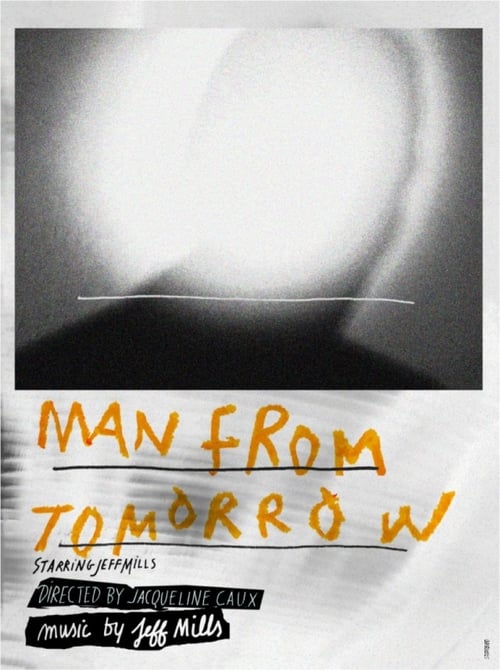 MAN FROM
TOMORROW
STARRING JEFF MILLS
DIRECTED BY JACQUELINE CAUX
music by Jeff Mills